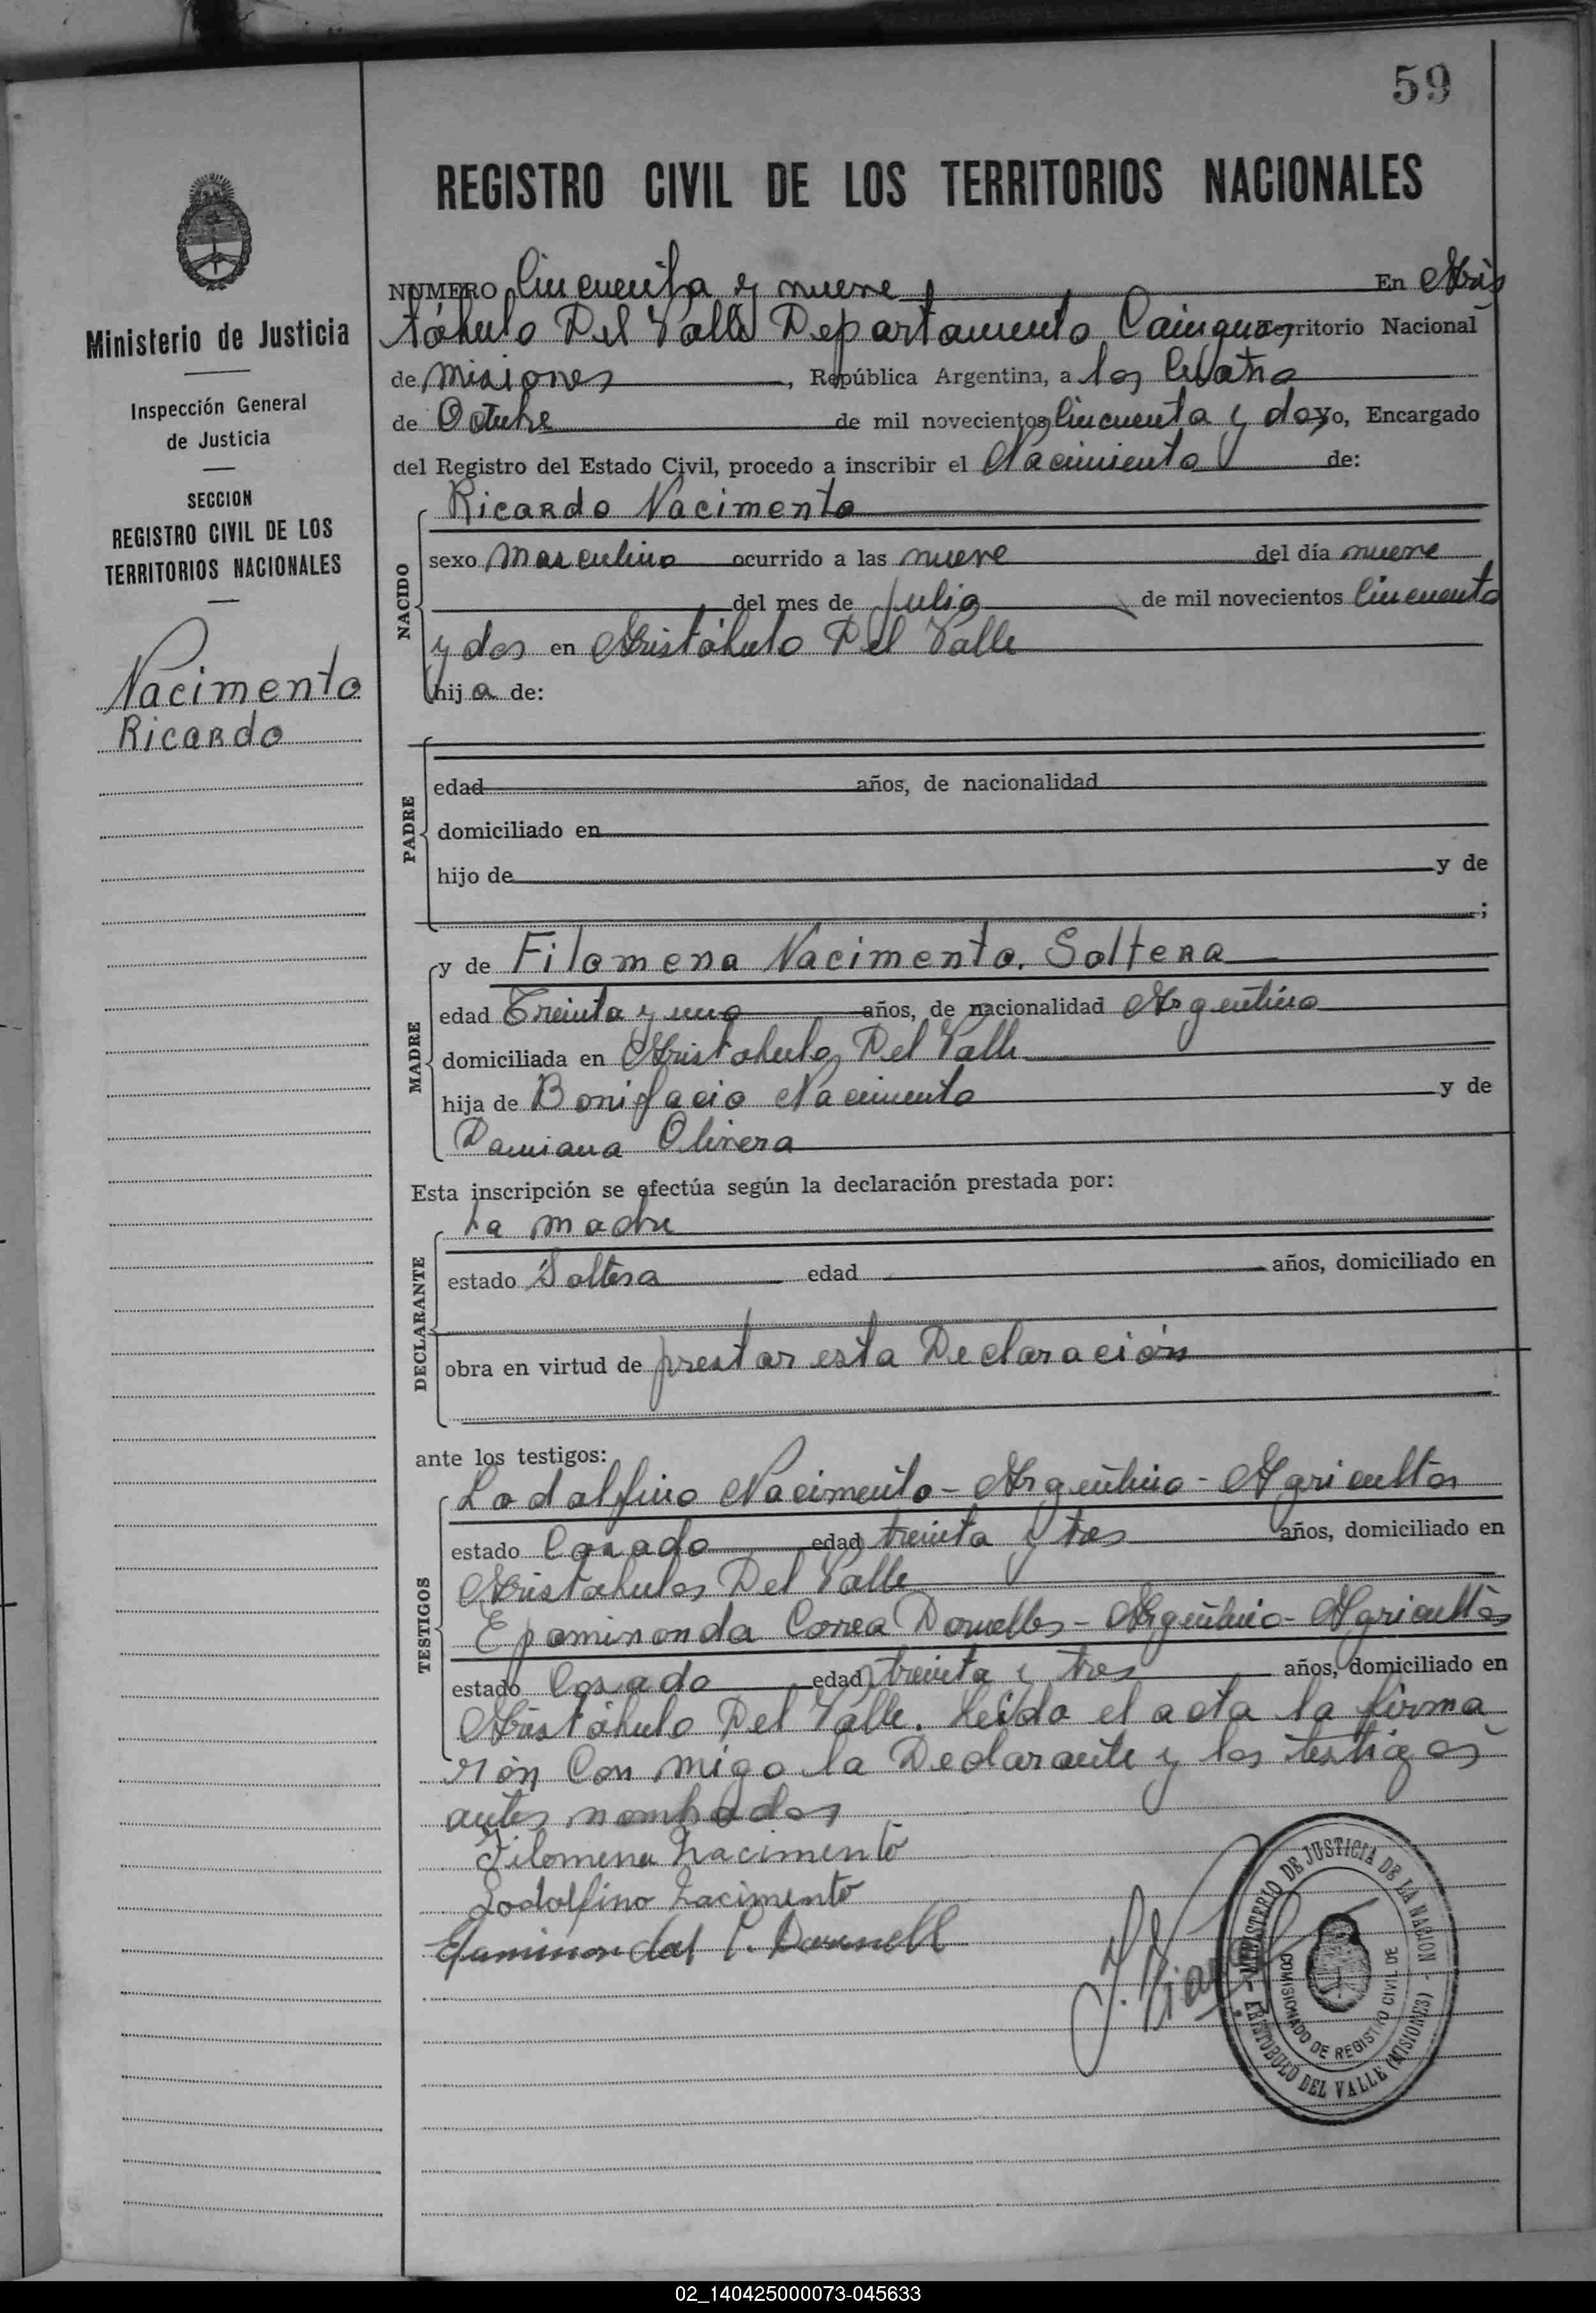 59
REGISTRO CIVIL DE LOS TERRITORIOS NACIONALES
Ministerio de Justicia
Inspección General
de Justicia
SECCION
REGISTRO CIVIL DE LOS
TERRITORIOS NACIONALES
Nacimento
Ricardo
NUMERO Cincuenta y nueve En Aris
tóbulo Del Valle Departamento Cainguas, Territorio Nacional
de Misiones, República Argentina, a los Cuatro
de Octubre de mil novecientos Cincuenta y dos yo, Encargado
del Registro del Estado Civil, procedo a inscribir el Nacimiento de:
NACIDO
Ricardo Nacimento
sexo Masculino ocurrido a las nueve del día nueve
del mes de Julio de mil novecientos Cincuenta
y dos en Aristóbulo Del Valle
hij a de:
PADRE
edad años, de nacionalidad
domiciliado en
hijo de y de
;
MADRE
y de Filomena Nacimento. Soltera
edad Treinta y uno años, de nacionalidad Argentina
domiciliada en Aristobulo Del Valle
hija de Bonifacio Nacimento y de
Damiana Olivera
Esta inscripción se efectúa según la declaración prestada por:
DECLARANTE
La madre
estado Soltera edad años, domiciliado en
obra en virtud de prestar esta Declaración
ante los testigos:
TESTIGOS
Lodolfino Nacimento - Argentino - Agricultor
estado Casado edad treinta y tres años, domiciliado en
Aristobulos Del Valle
Epaminonda Correa Dornelles - Argentino - Agricultor
estado Casado edad treinta y tres años, domiciliado en
Aristóbulo Del Valle. Leído el acta la firma
rón Con migo la Declarante y los testigos
antes nombrados
Filomena Nacimento
Lodolfino Nacimento
Epaminondas C. Dornell
MINISTERIO DE JUSTICIA DE LA NACION - ARISTOBULO DEL VALLE (MISIONES) -
COMISIONADO DE REGISTRO CIVIL DE
02_140425000073-045633